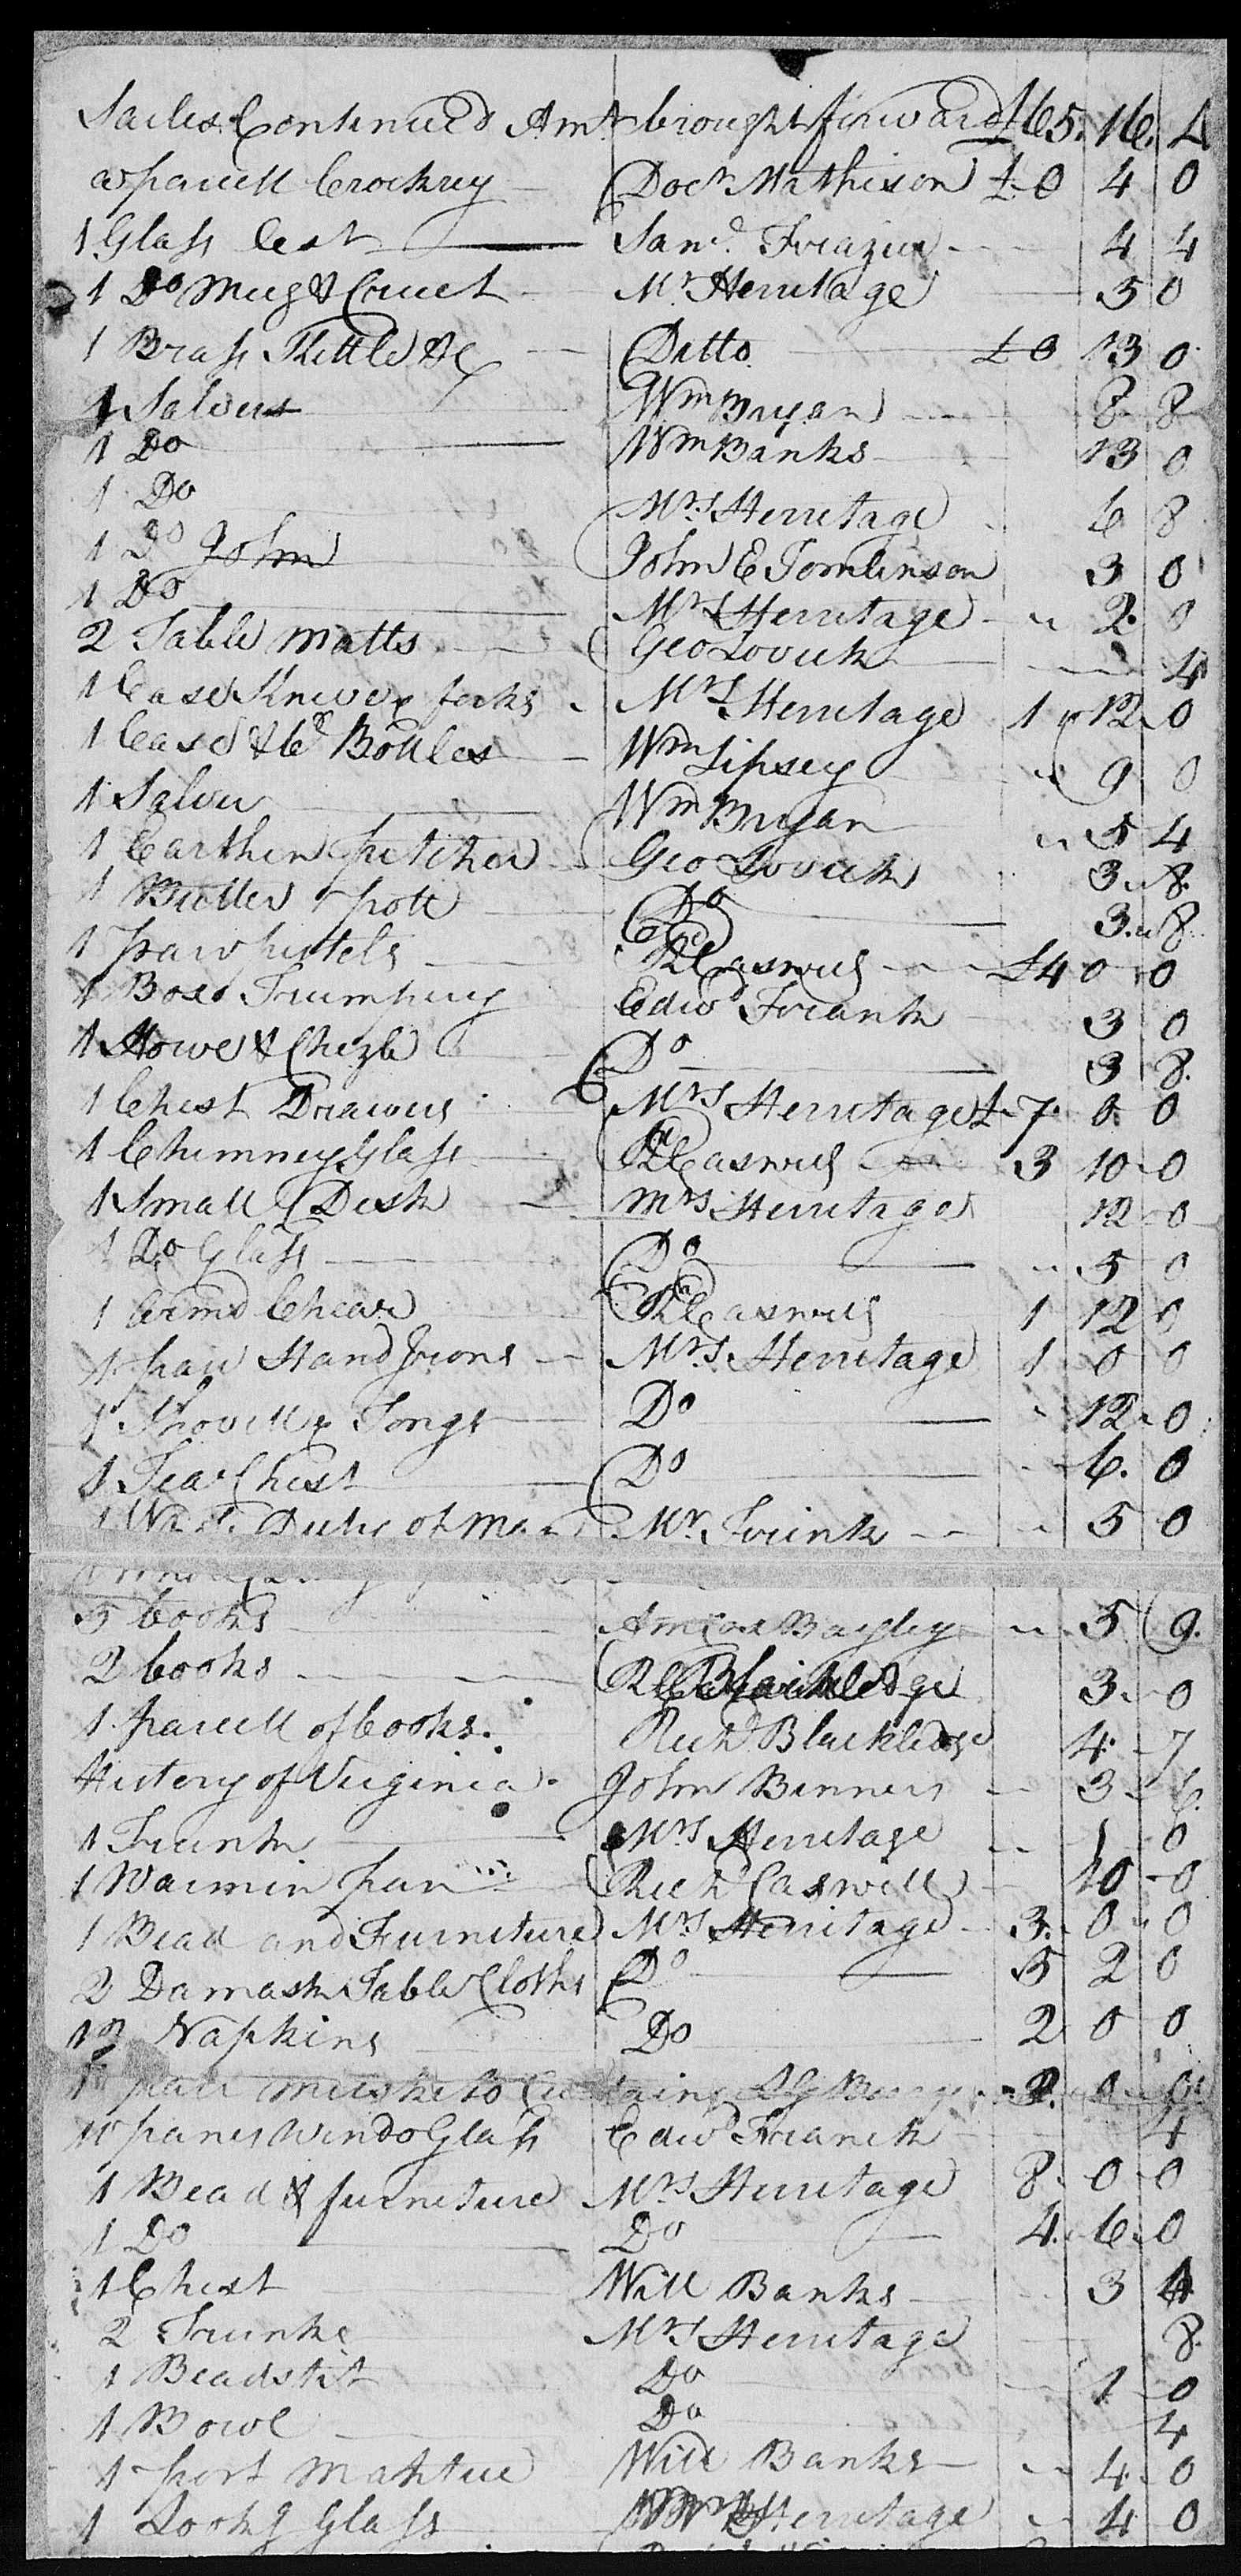 Sailes Continued Amt brought forward £65. 16. 4
a parcell Crockrey Docr Mathison £0 4 0
1 Glass Cest Sand. Frazier 4 4
1 Do Mug & Cruet Mr. Herritage 5 0
1 Brass Kettle &c Ditto £0 13 0
1 Salvers Wm Bryan 8 8
1 Do Wm Banks 13 0
1 Do Mrs Herritage 6 8
1 Do John John E Tomlinson 3 0
1 Do Mrs Herritage 2 0
2 Table Matts Geo Lovick 4
1 Case Knives forks Mrs Herritage 1 12 0
1 Case & 6 Bottles Wm Lipsey 9 0
1 Salver Wm Bryan 5 4
1 Earthen pitcher Geo Lovick 3 8
1 Butter pott Do 3 8
1 pair pistels Rd Caswell £4 0 0
1 Box Trumpery Edwd Frank 3 0
1 Howe & Chizle Do 3 8
1 Chest Drawers Mrs Herritage £7 0 0
1 Chimney Glass Rd Caswell 3 10 0
1 Small Desk Mrs Herritage 12 0
1 Do Glass Do 5 0
1 Armd Chear Rd Caswell 1 12 0
1 pair Hand Irons Mrs Herritage 1 0 0
1 Shovell & Tongs Do 12 0
1 Tea Chest Do 6. 0
1 Duty of Man Mr. Frink 5 0
5 books Bayley 5 9
2 books Rd Blackledge 3 0
1 parcell of books. Richd Blackledge 4 7
History of Virginia. John Benners 3 6
1 Trunk Mrs Herritage 1 0
1 Warmin pan Richd Caswell 10 0
1 Bead and Furniture Mrs Herritage 3. 0 0
2 Damask Table Cloths Do 5 2 0
13 Napkins Do 2 0 0
1 pair musketo Curtaing 2. 0 0
10 panes Windo Glass Edwd Franck 4
1 Bead & furneture Mrs Herritage 8. 0 0
1 Do Do 4. 6. 0
1 Chest Will Banks 3 4
2 Trunks Mrs Herritage 8.
1 Beadstit Do 1 0
1 Bowl Do 4
1 port Mantue Will Banks 4. 0
1 Lookg Glass Mrs Herritage 4 0